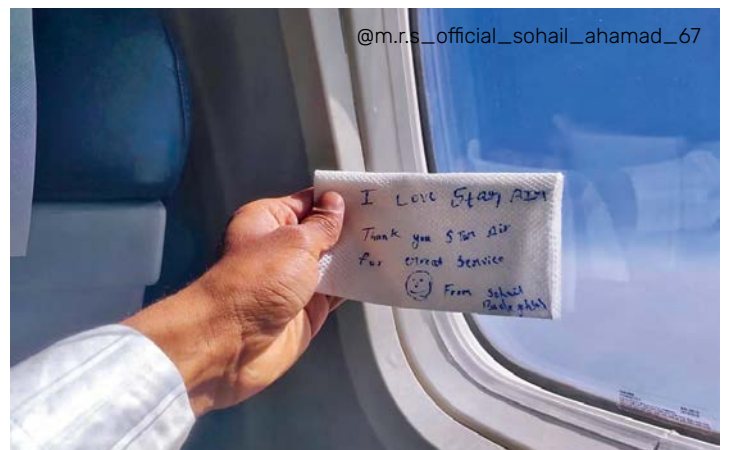 @m.r.s_official_sohail_ahamad_67
I LOVE Star AIR
Thank you Star Air
for Great Service
From Sohail